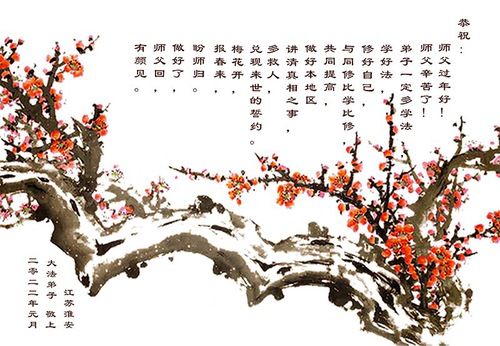 恭祝：
师父过年好！
师父辛苦了！
弟子一定多学法
学好法，
修好自己，
与同修比学比修
共同提高，
做好本地区
讲清真相之事，
多救人，
兑现来世的誓约。
梅花开，
报春来，
盼师归。
做好了，
师父回，
有颜见。
江苏淮安
大法弟子 敬上
二零二二年元月